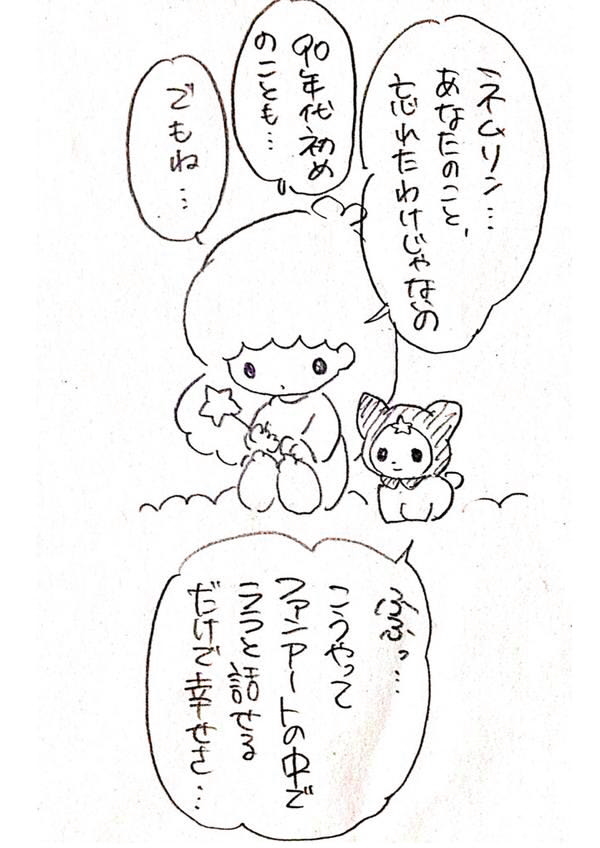 ネムリン…
あなたのこと、
忘れたわけじゃないの
90年代初め
のことも…
でもね…
ふふっ…
こうやって
ファンアートの中で
ララと話せる
だけで幸せさ…